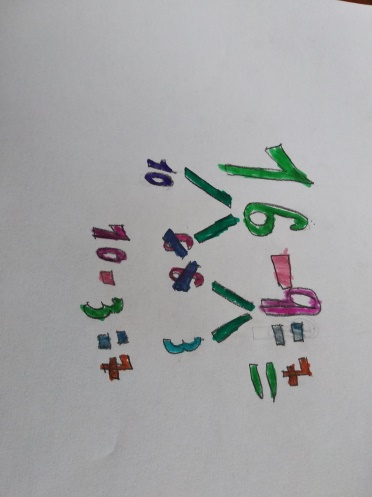 16 - 9 = 7
10 6 6 3
10 - 3 = 7